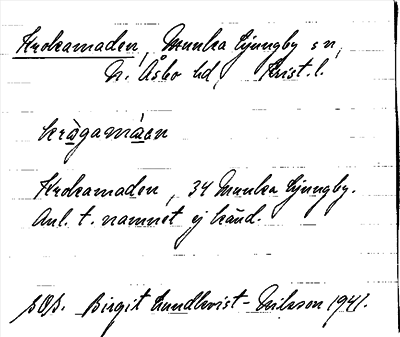 Krokamaden, Munka Ljungby sn,
N. Åsbo hd, Krist. l.
kràgamáen
Krokamaden, 34 Munka Ljungby.
Anl. t. namnet ej känd.
SOS. Birgit Lundkvist-Nilsson 1941.